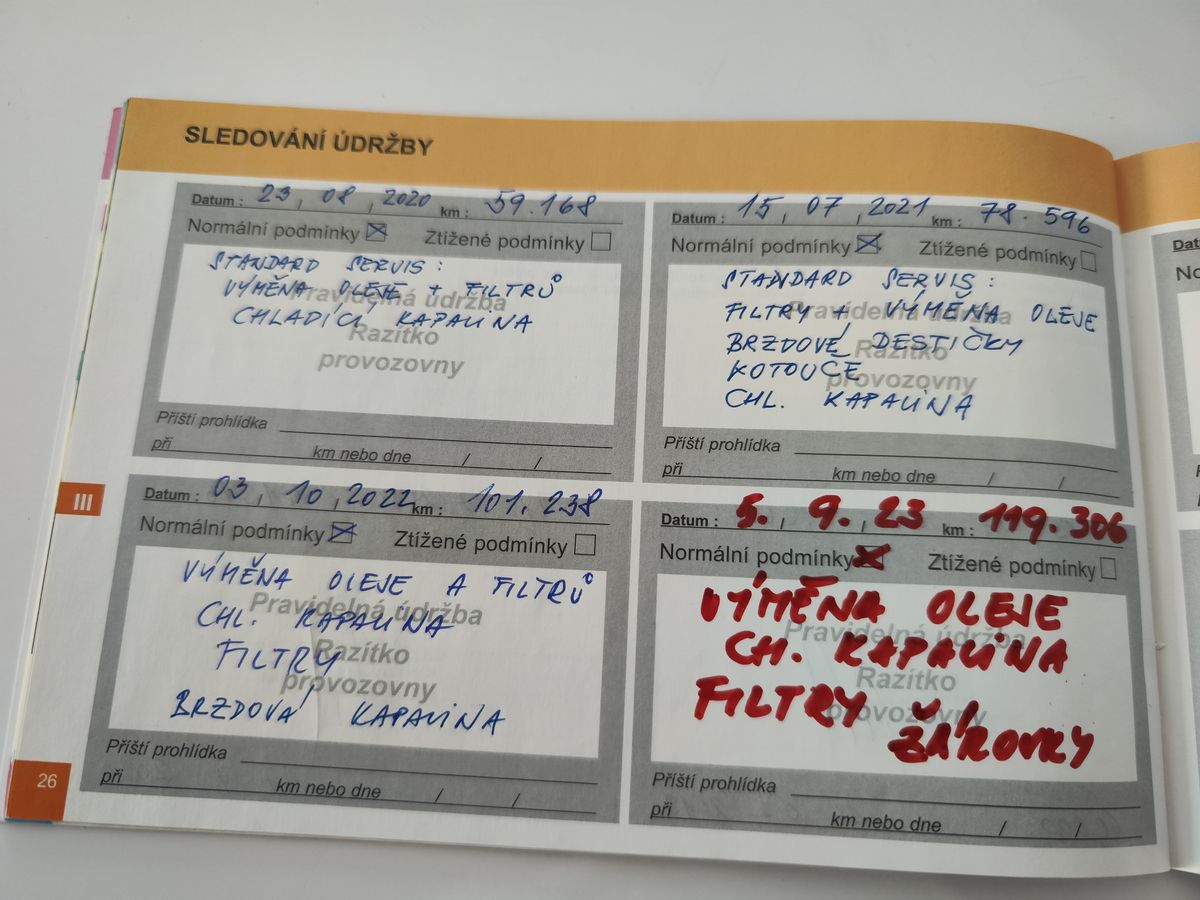 SLEDOVÁNÍ ÚDRŽBY
Datum : 23 , 08 , 2020 km : 59.168
Normální podmínky Ztížené podmínky
STANDARD SERVIS :
VÝMĚNA OLEJE + FILTRŮ
CHLADÍCÍ KAPALINA
Pravidelná údržba
Razítko
provozovny
Příští prohlídka
při km nebo dne / /
Datum : 15 , 07 , 2021 km : 78.596
Normální podmínky Ztížené podmínky
STANDARD SERVIS :
FILTRY + VÝMĚNA OLEJE
BRZDOVÉ DESTIČKY
KOTOUČE
CHL. KAPALINA
Pravidelná údržba
Razítko
provozovny
Příští prohlídka
při km nebo dne / /
III
Datum : 03 , 10 , 2022 km : 101.238
Normální podmínky Ztížené podmínky
VÝMĚNA OLEJE A FILTRŮ
CHL. KAPALINA
FILTRY
BRZDOVÁ KAPALINA
Pravidelná údržba
Razítko
provozovny
Příští prohlídka
při km nebo dne / /
Datum : 5. , 9. , 23 km : 119.306
Normální podmínky Ztížené podmínky
VÝMĚNA OLEJE
CH. KAPALINA
FILTRY
ŽÁROVKY
Pravidelná údržba
Razítko
provozovny
Příští prohlídka
při km nebo dne / /
26